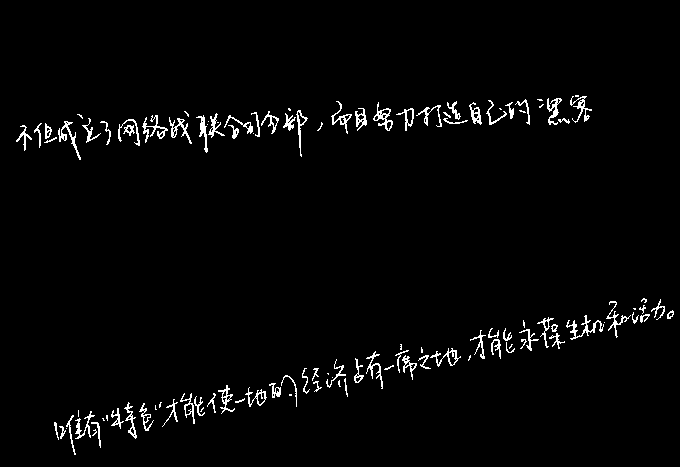 不但成立了网络战联合司令部，而且努力打造自己的黑客
唯有“特色”才能使一地的经济占有一席之地，才能永葆生机和活力。